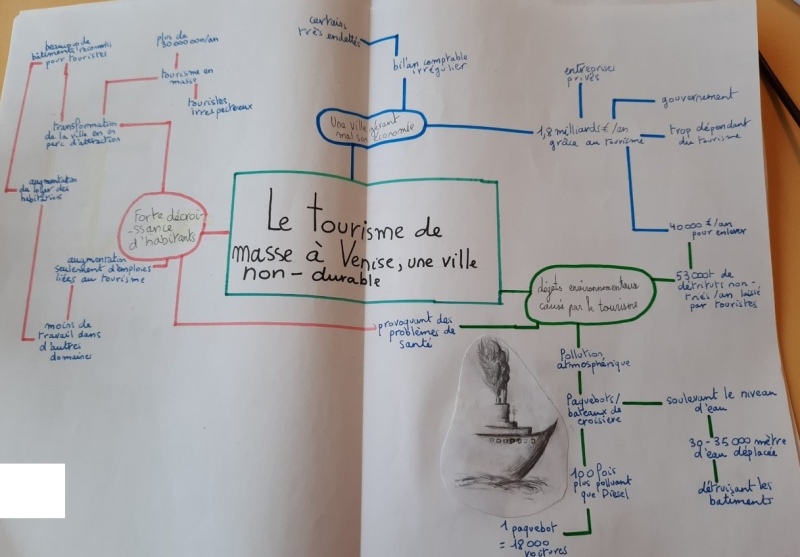 Le tourisme de
masse à Venise, une ville
non-durable
Une ville gérant
mal son économie
bilan comptable
irrégulier
certains
très endettés
1,8 milliards € /an
grâce au tourisme
entreprises
privés
gouvernement
trop dépendant
du tourisme
40 000 € /an
pour enlever
53000t de
détritus non-
triés/an laissé
par touristes
déjets environnementaux
causé par le tourisme
provoquant des
problèmes de
santé
Pollution
atmosphérique
Paquebots/
bateaux de
croisière
soulevant le niveau
d'eau
30-35 000 mètre
d'eau déplacée
détruisant les
batiments
100 fois
plus polluant
que Diesel
1 paquebot
= 18 000
voitures
Forte décroi-
-ssance
d'habitants
transformation
de la ville en un
parc d'attraction
tourisme en
masse
plus de
30 000 000/an
touristes
irrespectueux
beaucoup de
bâtiments reconvertis
pour touristes
augmentation
du loyer des
habitations
augmentation
seulement d'emploies
liées au tourisme
moins de
travail dans
d'autres
domaines